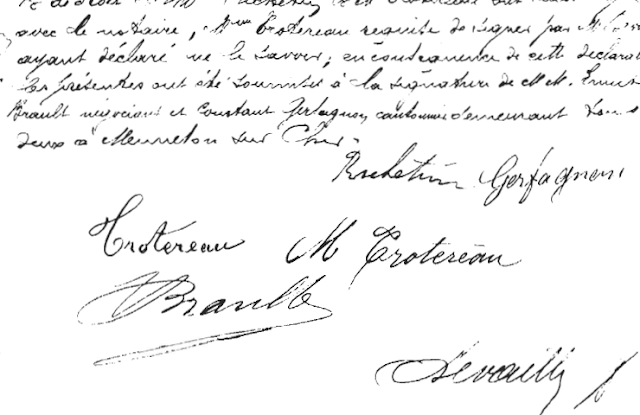 avec le notaire, Mme Trotereau requise de signer par M.
ayant déclaré ne le savoir; en conséquence de cette déclarat
les présentes ont été soumises à la signature de MM. Ernest
Brault négociant et Constant Gerfagnon, cantonnier demeurant tous
deux à Mennetou sur Cher.
Gerfagnon
Trotereau M Trotereau
Brault
Devailly